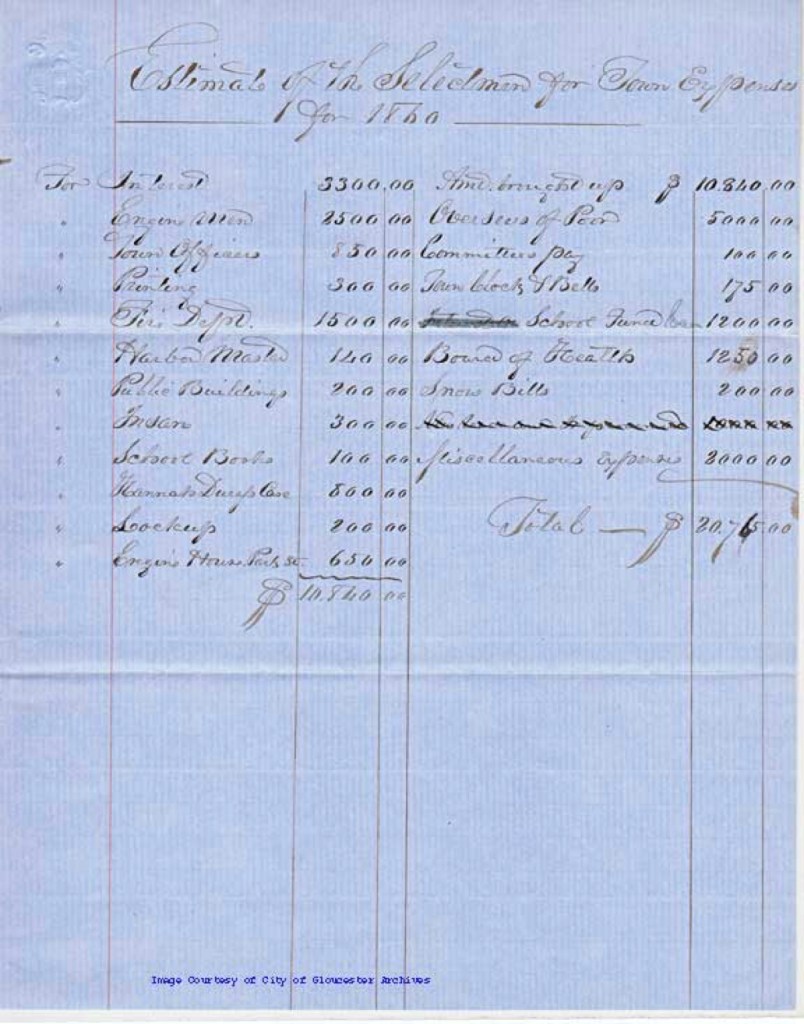 Estimate of the Selectmen for Town Expenses
for 1860
For Interest 3300.00
" Engine Men 2500 00
" Town Officers 850 00
" Printing 300 00
" Fire Dept. 1500 00
" Harbor Master 140 00
" Public Buildings 200 00
" Insan 300 00
" School Books 100 00
" Hannah Case 800 00
" Lockup 200 00
" Engine House Park St. 650 00
$ 10.840 00
Amt. brought up $ 10.840.00
Overseers of Poor 5000 00
Committees pay 100 00
Town Clock & Bells 175 00
School Fund 1200 00
Board of Health 1250 00
Snow Bills 200 00
Miscellaneous Expenses 2000 00
Total — $ 20.765.00
Image Courtesy of City of Gloucester Archives